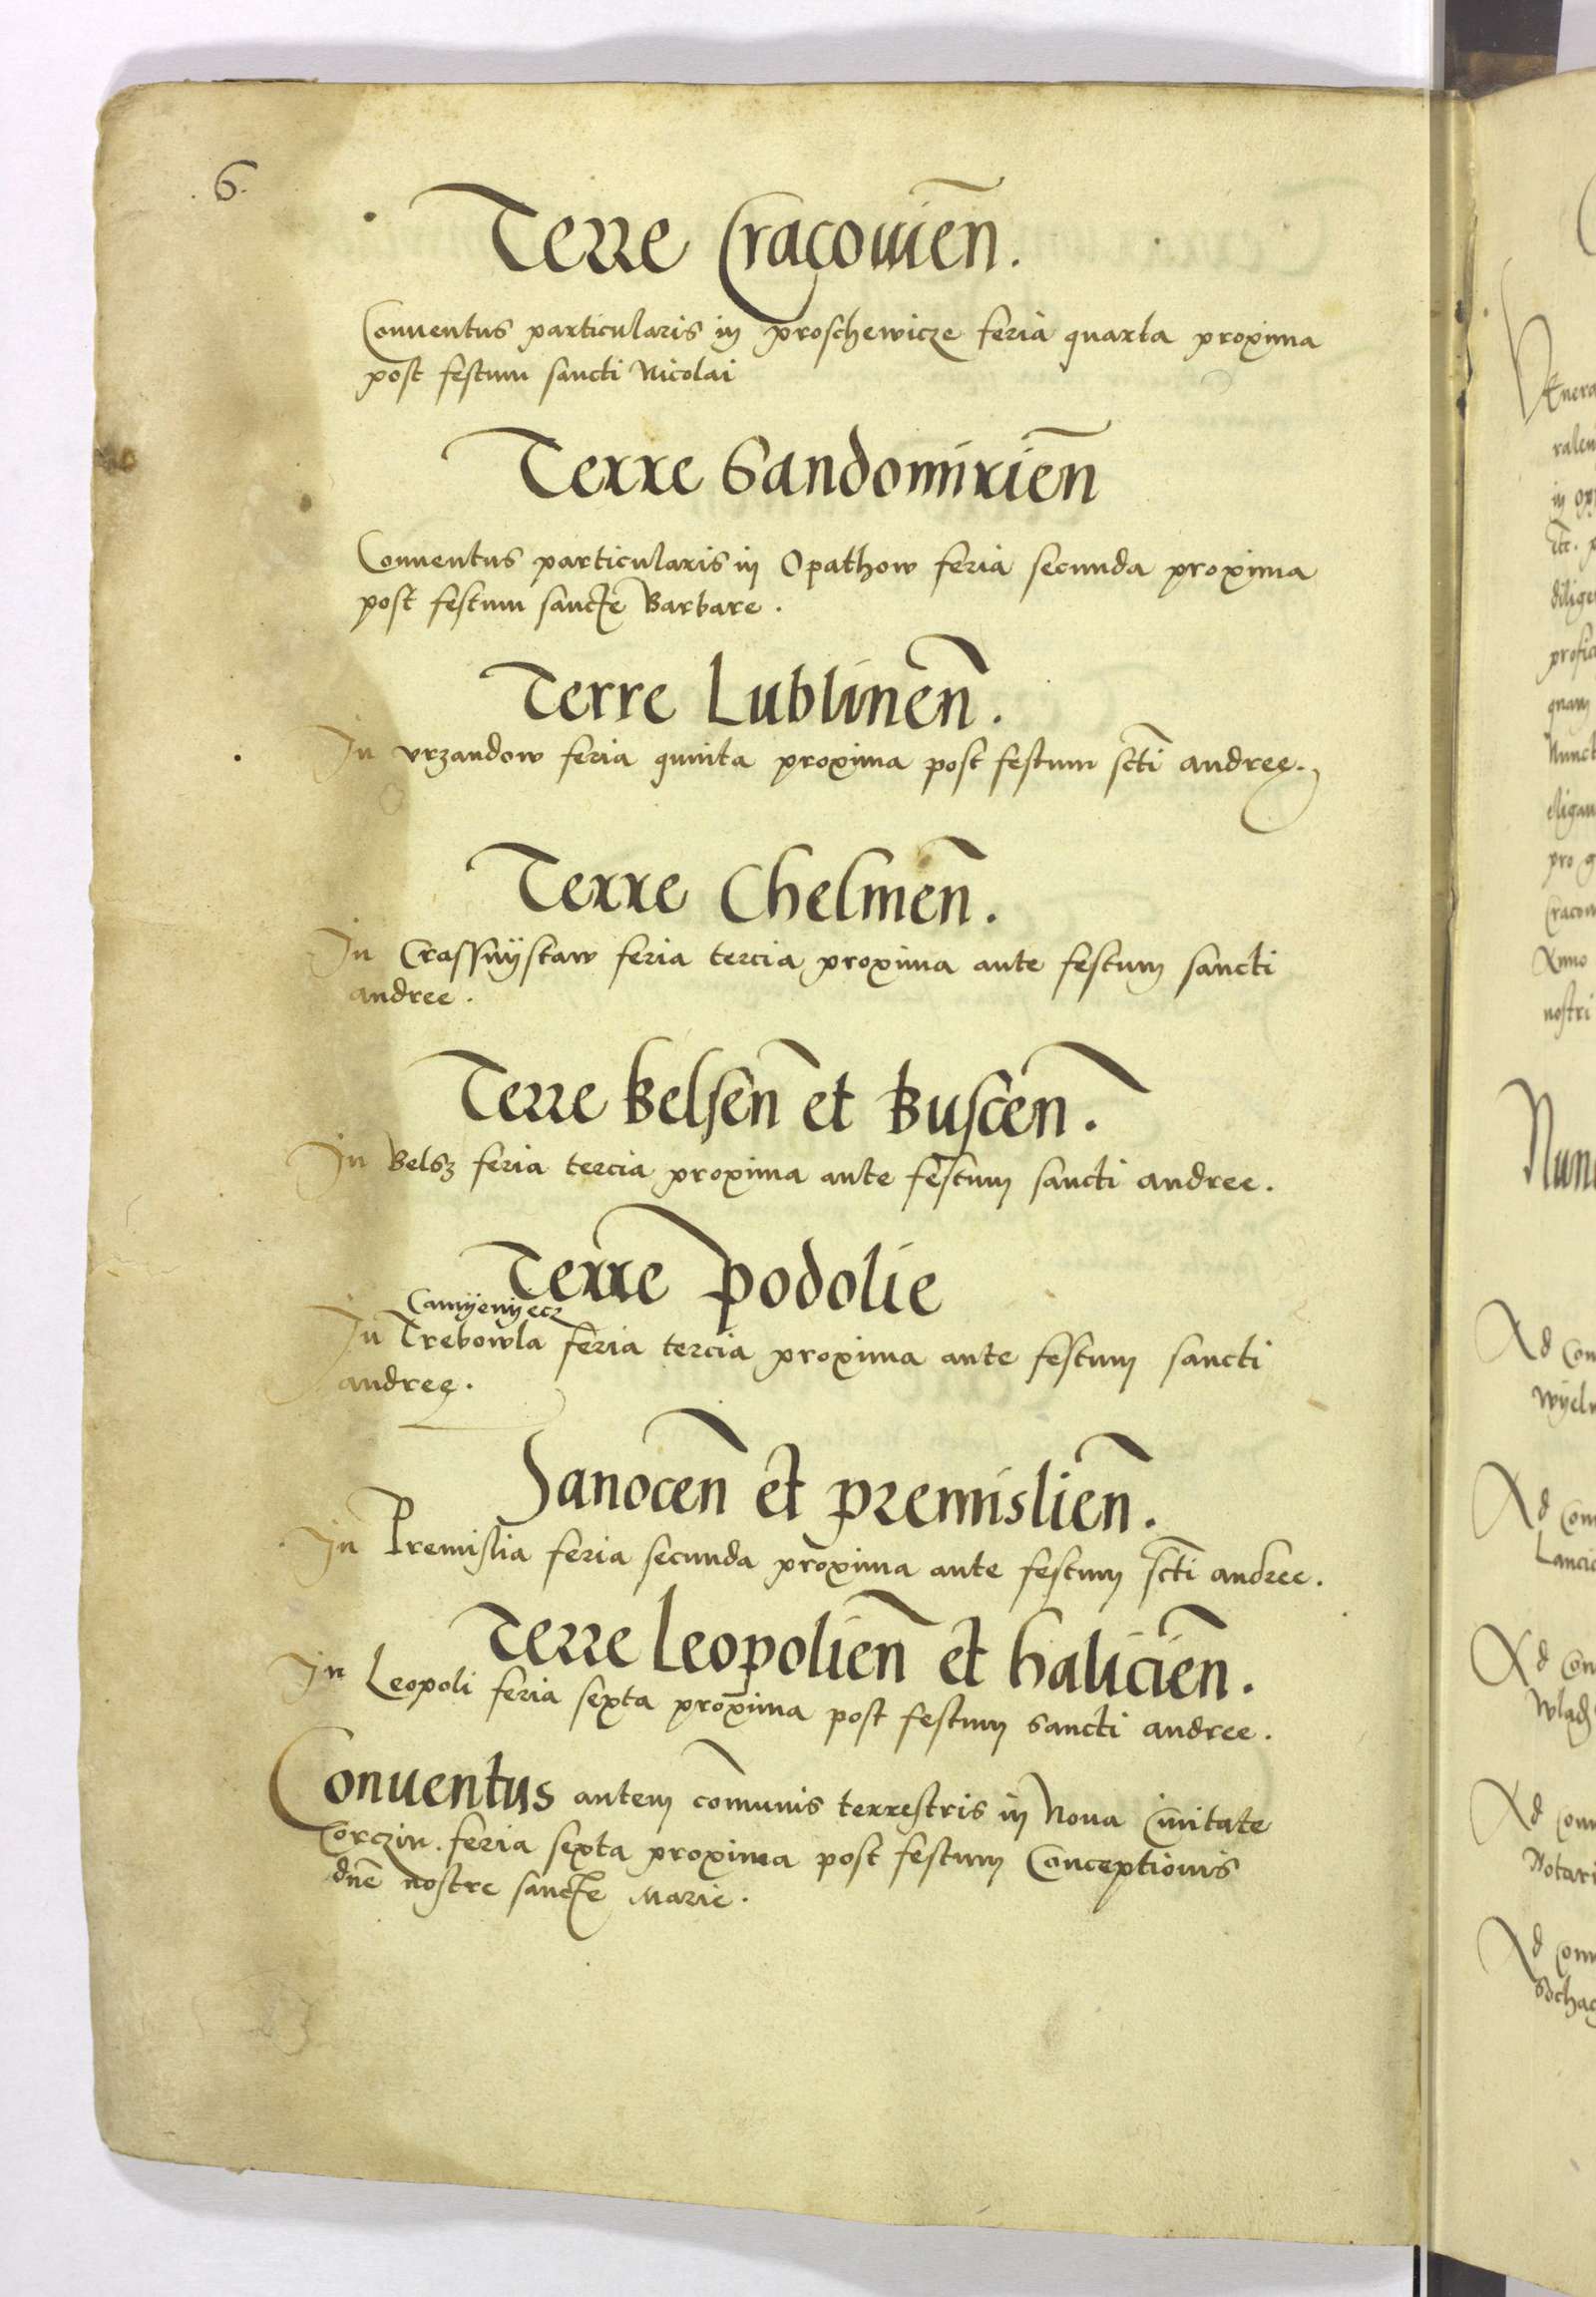 6.
Terre Cracouien̄.
Conuentus particularis in proschewicze feria quarta proxima
post festum sancti Nicolai
Terre Sandomirien̄
Conuentus particularis in Opathow feria secunda proxima
post festum sancte Barbare.
Terre Lublinen̄.
In vrzandow feria quinta proxima post festum scti andree.
Terre Chelmen̄.
In Crassnÿstaw feria tercia proxima ante festum sancti
andree.
Terre Belsen̄ et Buscen̄.
In Belsz feria tercia proxima ante festum sancti andree.
Terre podolie
Camÿenÿecz
In Trebowla feria tercia proxima ante festum sancti
andree.
Sanocen̄ et premislien̄.
In Premislia feria secunda proxima ante festum scti andree.
Terre Leopolien̄ et halicien̄.
In Leopoli feria sexta proxima post festum sancti andree.
Conuentus autem com̄unis terrestris in Noua Ciuitate
Corczin. feria sexta proxima post festum Conceptionis
dn̄e nostre sancte Marie.